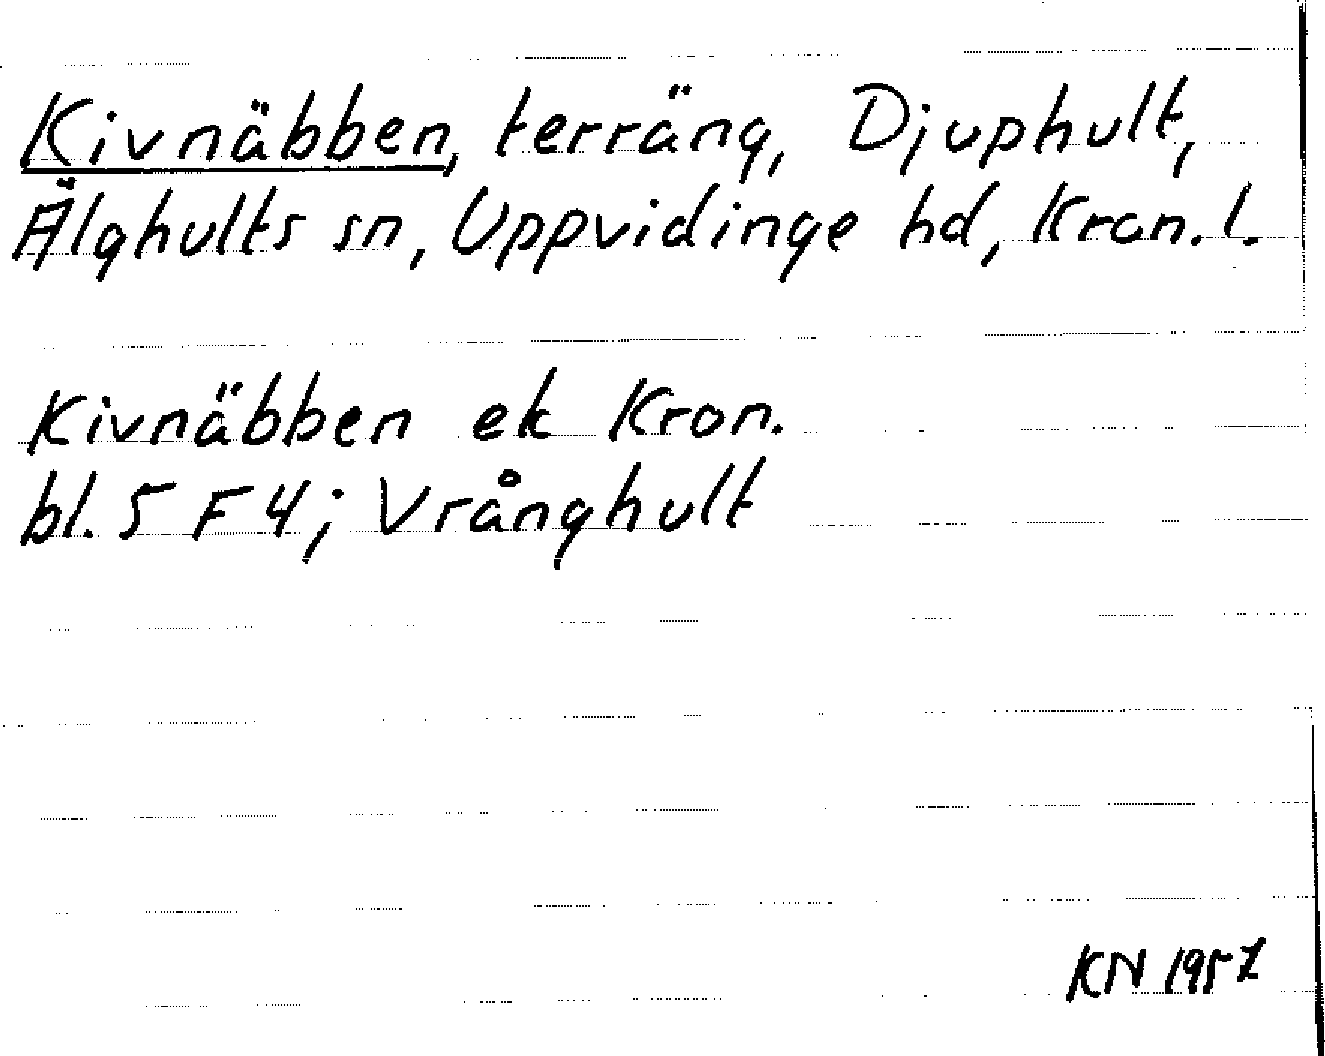 Kivnäbben, terräng, Djuphult,
Älghults sn, Uppvidinge hd, Kron. l.
Kivnäbben ek Kron.
bl. 5 F 4; Vrånghult
KN 1957